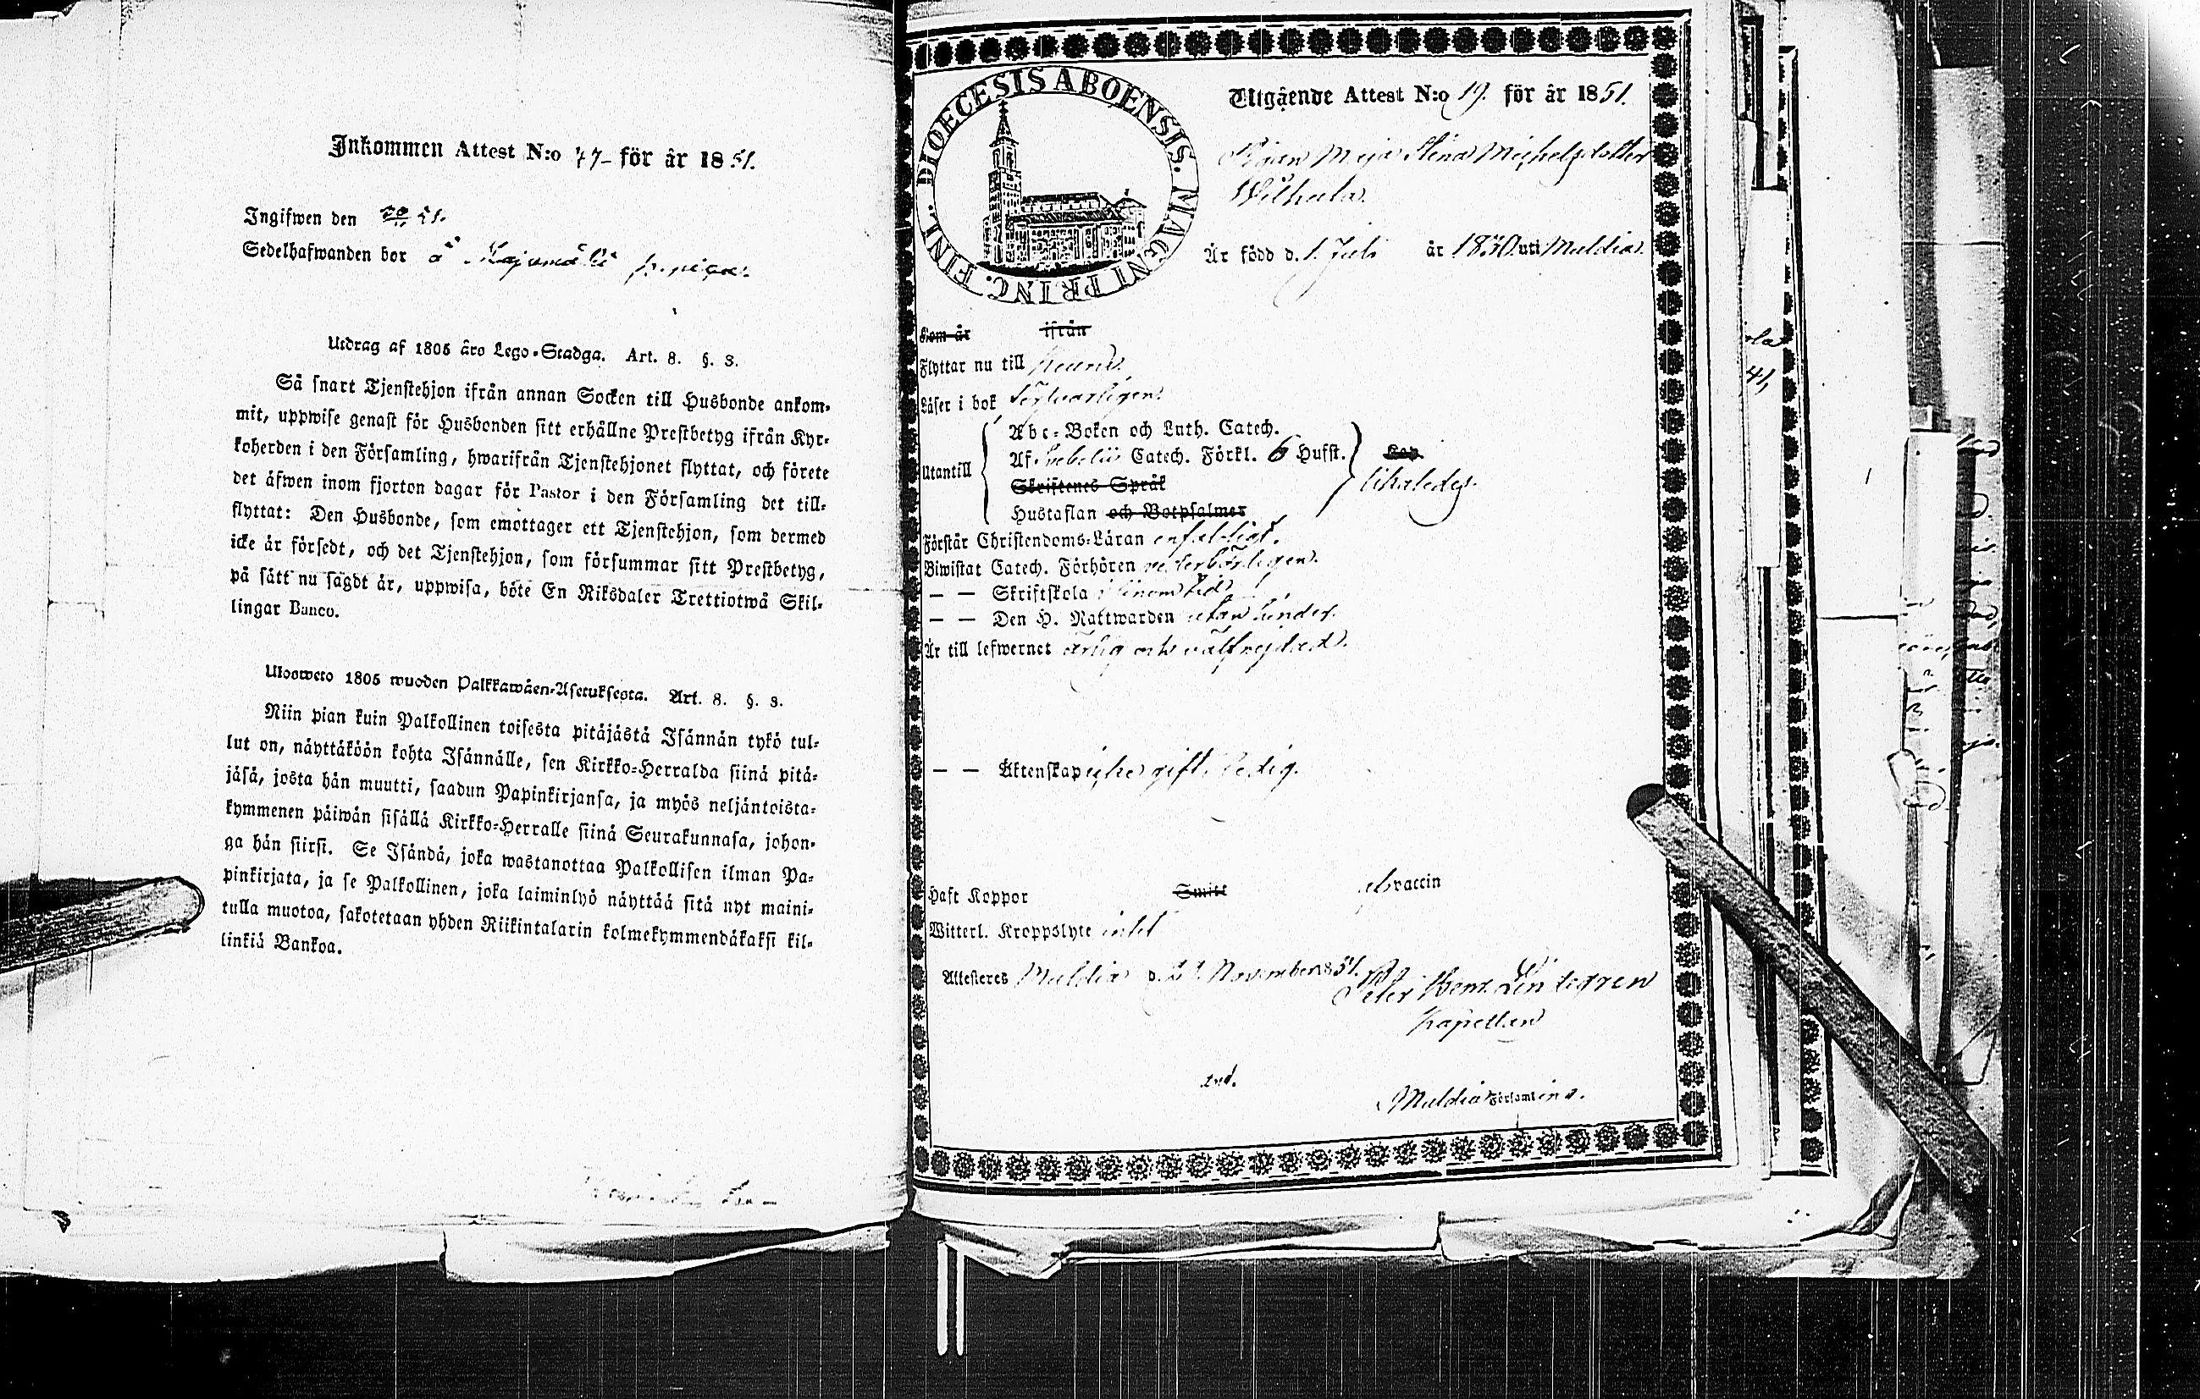 Inkommen Attest N:o 47 för år 1851.
Ingifwen den 51.
Sedelhafwanden bor å piga.
Utdrag af 1805 åro Lego-Stadga. Art. 8. §. 3.
Så snart Tjenstehjon ifrån annan Socken till Husbonde ankom-
mit, uppwise genast för Husbonden sitt erhållne Prestbetyg ifrån Kyr-
koherden i den Församling, hwarifrån Tjenstehjonet flyttat, och förete
det äfwen inom fjorton dagar för Pastor i den Församling det till-
flyttat: Den Husbonde, som emottager ett Tjenstehjon, som dermed
icke är försedt, och det Tjenstehjon, som försummar sitt Prestbetyg,
på sätt nu sagdt är, uppwisa, böte En Riksdaler Trettiotwå Skil-
lingar Banco.
Ulosweto 1805 wuoden Palkkawäen-Asetuksesta. Art. 8. §. 3.
Niin pian kuin Palkollinen toisesta pitäjästä Isännän tykö tul-
lut on, näyttäköön kohta Isännälle, sen Kirkko-Herralda siinä pitä-
jäsä, josta hän muutti, saadun Papinkirjansa, ja myös neljäntoista-
kymmenen päiwän sisällä Kirkko-Herralle siinä Seurakunnasa, johon-
ga hän siirsi. Se Isändä, joka wastanottaa Palkollisen ilman Pa-
pinkirjata, ja se Palkollinen, joka laiminlyö näyttää sitä nyt maini-
tulla muotoa, sakotetaan yhden Riikintalarin kolmekymmendäkaksi kil-
linkiä Bankoa.
DIOECESIS ABOENSIS. MAGNI PRINC. FINL.
Utgående Attest N:o 19. för år 1851.
Pigan Maja Stina Michelsdotter
Wilhula.
Är född d. 1 Juli år 1830 uti Muldia.
Kom år ifrån
Flyttar nu till Keuru.
Läser i bok försvarligen.
Utantill
Abc-Boken och Luth. Catech.
Af Svebelii Catech. Förkl. 6 Hufst.
Skriftenes Språk
Hustaflan och Botpsalmer
likaledes.
Förstår Christendoms-Läran enfaldigt.
Biwistat Catech. Förhören vederbörligen.
— — Skriftskola i sinom tid
— — Den H. Nattwarden utan hinder.
Är till lefwernet ärlig och välfrejdad.
— — Äktenskap icke gift. Ledig.
Haft Koppor Smitt vaccin
Witterl. Kroppslyte intet
Attesteres Muldia d. November 1851.
Peter Henr. Lindegren
Kapellan
Muldia Församling.